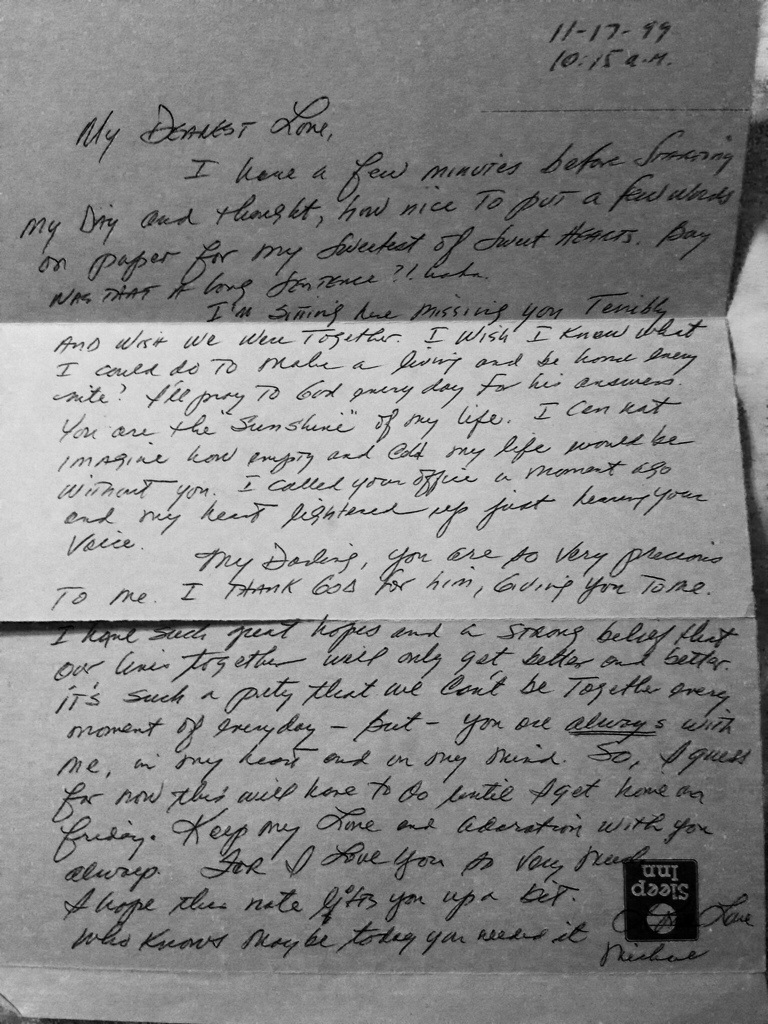 11-17-99
10:15 a.m.
My Dearest Love,
I have a few minutes before starting
my Day and thought, how nice to put a few words
on paper for my sweetest of sweet HEARTS. Boy
WAS THAT A long SENTENCE?! haha.
I'm sitting here missing you Terribly
AND wish we were Together. I wish I knew what
I could do to make a living and be home every
nite? I'll pray to God every day for his answers.
You are the "Sunshine" of my life. I can not
imagine how empty and cold my life would be
without you. I called your office a moment ago
and my heart lightened up just hearing your
voice.
My Darling, you are so very precious
To me. I THANK GOD for him, Giving you to me.
I have such great hopes and a strong belief that
our lives together will only get better and better.
It's such a pity that we can't be Together every
moment of everyday - But - you are always with
me, in my heart and in my mind. So, I guess
for now this will have to do until I get home on
friday. Keep my Love and adoration with you
always. For I Love You so very much
I hope this note lifts you up a bit.
Who knows maybe today you needed it
Love
Sleep
Inn